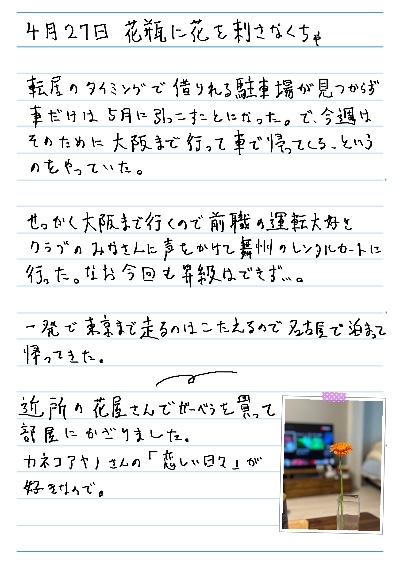 4月27日 花瓶に花を刺さなくちゃ
転居のタイミングで借りれる駐車場が見つからず
車だけは5月に引っこすことになった。で、今週は
そのために大阪まで行って車で帰ってくる、という
のをやっていた。
せっかく大阪まで行くので前職の運転大好き
クラブのみなさんに声をかけて舞州のレンタルカートに
行った。なお今回も昇級はできず…。
一発で東京まで走るのはこたえるので名古屋で泊まって
帰ってきた。
近所の花屋さんでガーベラを買って
部屋にかざりました。
カネコアヤノさんの「恋しい日々」が
好きなので。